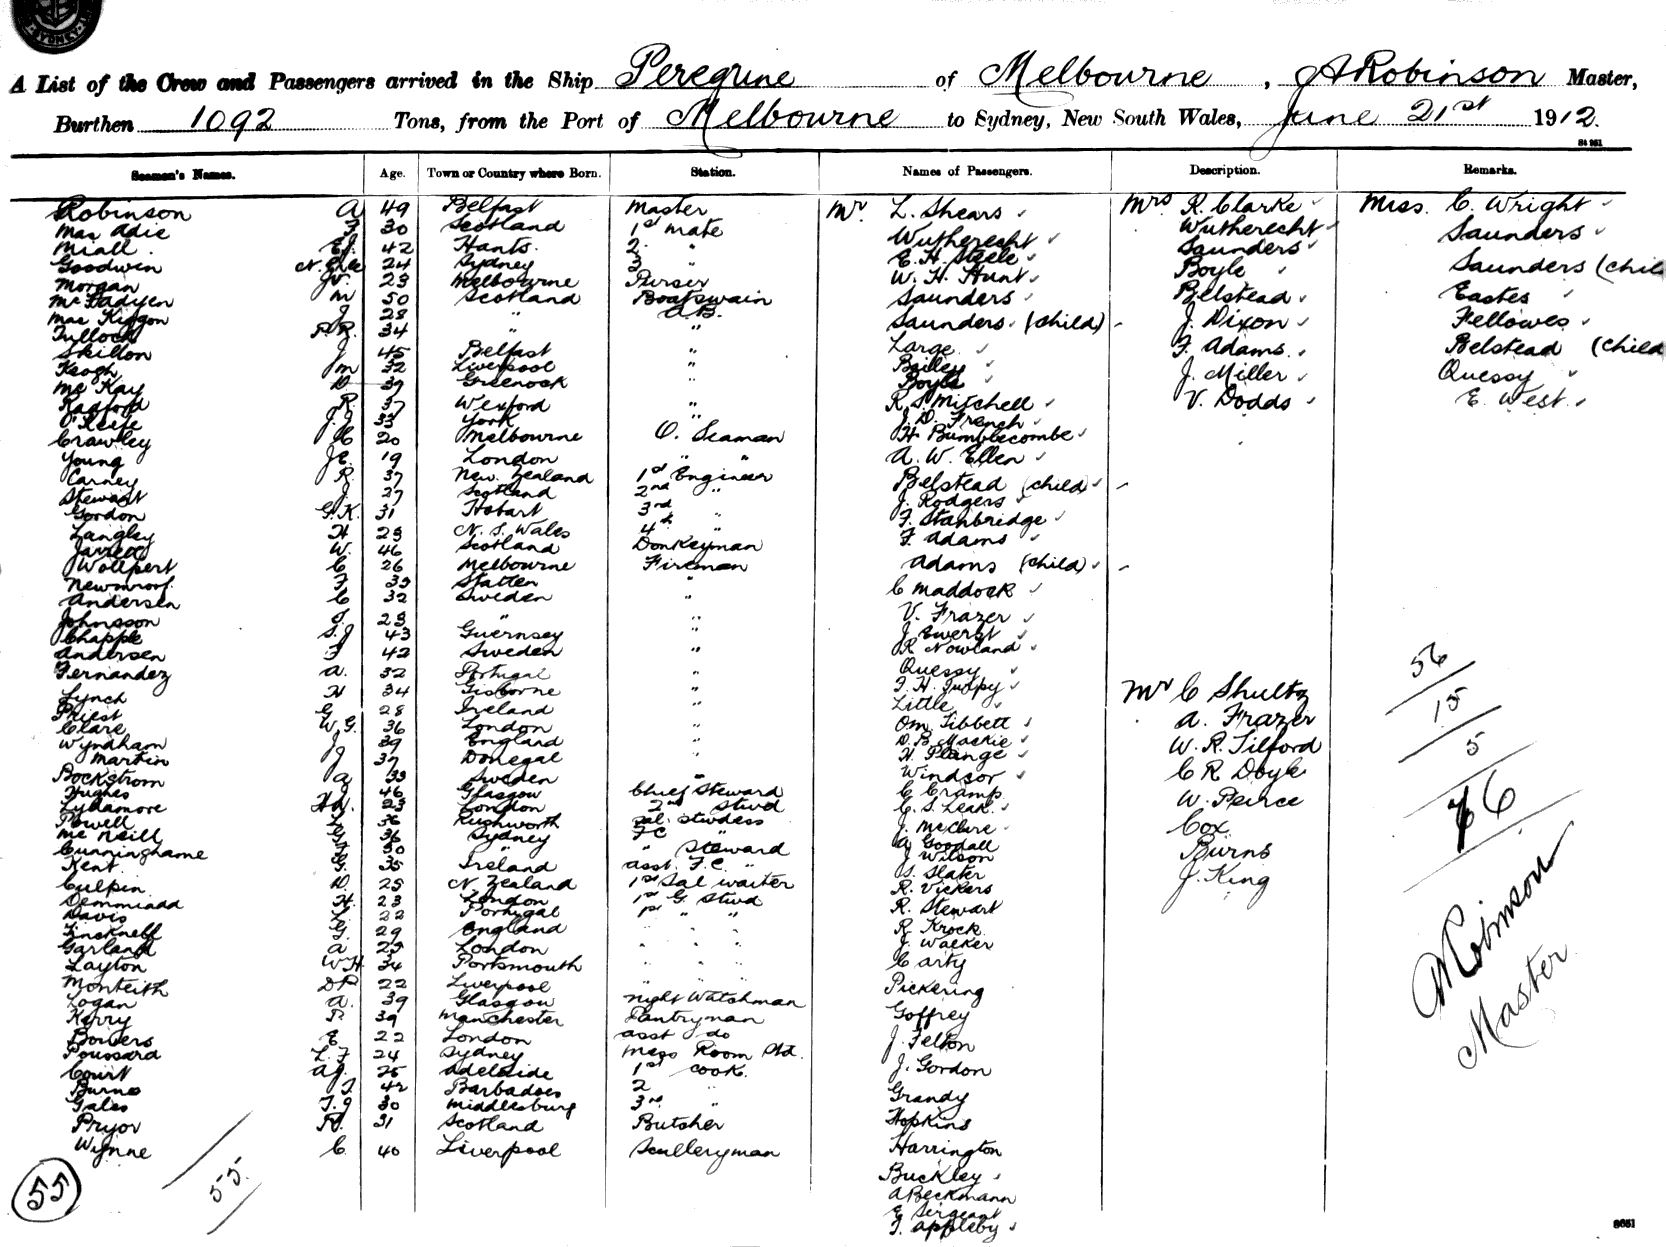 SYDNEY
A List of the Crew and Passengers arrived in the Ship Peregrine of Melbourne, A Robinson Master,
Burthen 1092 Tons, from the Port of Melbourne to Sydney, New South Wales, June 21st 1912.
Seamen's Names. Age. Town or Country where Born. Station. Names of Passengers. Description. Remarks.
Robinson A 49 Belfast Master
Mac Adie 30 Scotland 1st mate
Miall E.J. 42 Hants. 2 "
Goodwin 24 Sydney 3 "
Morgan 23 Melbourne Purser
McFadyen m 50 Scotland Boatswain
Mac Kignon J 28 " A.B.
Tulloch 34 " "
Skillon J 45 Belfast "
Keogh m 32 Liverpool "
McKay D 39 Greenock "
Radford R 37 Wexford "
O'Keefe J.J 33 York "
Crawley C 20 Melbourne O. Seaman
Young 19 London " "
Carney R. 37 New Zealand 1st Engineer
Stewart J 27 Scotland 2nd "
Gordon G.K. 31 Hobart 3rd
Langley H 23 N. S. Wales 4th "
W. 46 Scotland Donkeyman
Wollpert C 26 Melbourne Fireman
F 33 "
Andersen C 32 Sweden "
Johnsson 23 "
Chapple S.J 43 Guernsey "
Andersen F 42 Sweden "
Fernandez A. 32 Portugal "
Lynch H 34 Gisborne "
Priest 28 Ireland "
Clare W.G. 36 London "
Wyndham J 39 England "
Martin J 37 Donegal "
Bockstrom A 33 Sweden "
Hughes 46 Glasgow Chief Steward
Lydamore 23 London 2nd Stwd
Powell 36 Rushworth Sal. Stwdess
McNeill 36 Sydney F C "
Cunninghame 30 " " Steward
Kent G. 35 Ireland asst. F.C. "
Culpin D. 25 N. Zealand 1st Sal waiter
Demmiadd H. 23 London 1st G. Stwd
Davis L. 22 Portugal 1st " "
Fincknell G. 29 England " " "
Garland A 23 London " " "
Layton WH 34 Portsmouth " " "
Monteith DP 22 Liverpool " "
Logan A. 39 Glasgow night Watchman
Kerry 39 Manchester Pantryman
Bowers E 22 London asst do
Poussard L.F 24 Sydney Mess Room Std.
Court AJ. 25 Adelaide 1st cook.
Burns J. 42 Barbadoes 2 "
Gales T.J 30 Middlesburg 3rd "
Pryor 31 Scotland Butcher
Wynne C. 40 Liverpool Sculleryman
55
55.
Mr. L. Shears
Wutherecht
E. H. Steele
W. H. Hunt
Saunders
Saunders (child)
Large
Bailey
Boyle
R. S. Mitchell
J. D. French
H. Bumblecombe
A. W. Ellen
Belstead (child)
J. Rodgers
F. Stanbridge
F. Adams
Adams (child)
C Maddock
V. Frazer
J. Ewerst
R Nowland
Quessy
Little
Om. Tibbett
D. B. Mackie
H. Plange
Windsor
C Cramp
C. S. Leak
J. McClure
A Goodall
J Wilson
S. Slater
R. Vickers
R. Stewart
R Krock
J. Walker
Carty
Pickering
Goffrey
J. Felton
J. Gordon
Grandy
Hopkins
Harrington
Buckley
A Beckmann
E Sergeant
F. Appleby
Mrs R. Clarke
Wutherecht
Saunders
Boyle
Belstead
J. Dixon
F. Adams
J. Miller
V. Dodds
Mr C Shultz
A. Frazer
W. R. Tilford
C R Doyle
W. Peirce
Cox
Burns
J. King
Miss. C. Wright
Saunders
Saunders (chil
Eastes
Fellowes
Belstead (child
Quessy
E. West
56
15
5
76
A Robinson
Master
84 951
8651